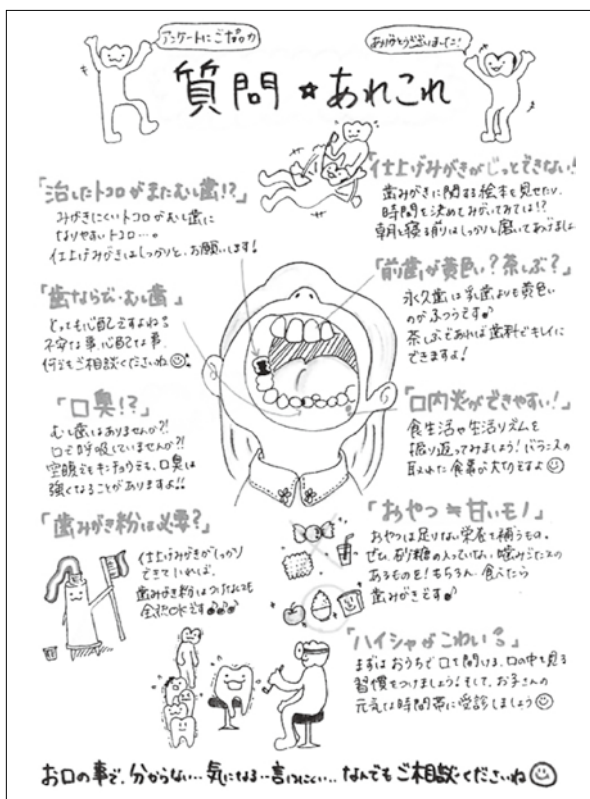 アンケートにご協力
ありがとうございました！
質問☆あれこれ
「治したトコロがまたむし歯!?」
みがきにくいトコロがむし歯に
なりやすいトコロ…。
仕上げみがきはしっかりと、お願いします！
「歯ならび・むし歯」
とっても心配ですよね。
不安な事、心配な事、
何でもご相談くださいね
「口臭!?」
むし歯はありませんか?!
口で呼吸していませんか?!
空腹でもキンチョウでも、口臭は
強くなることがありますよ!!
「歯みがき粉は必要？」
仕上げみがきがしっかり
できていれば、
歯みがき粉はつけなくても
全然OKです♪♪♪
「仕上げみがきがじっとできない！
歯みがきに関する絵本を見せたり、
時間を決めてみがいてみては!?
朝と寝る前はしっかりと磨いてあげましょ
「前歯が黄色い？茶しぶ？」
永久歯は乳歯よりも黄色い
のがふつうです♪
茶しぶであれば歯科でキレイに
できますよ！
「口内炎ができやすい！」
食生活や生活リズムを
振り返ってみましょう！バランスの
取れた食事が大切ですよ
「おやつ≒甘いモノ」
おやつは足りない栄養を補うもの。
ぜひ、砂糖の入っていない、噛みごたえの
あるものを！もちろん、食べたら
歯みがきです♪
「ハイシャがこわい。」
まずはおうちで口を開ける、口の中を見る
習慣をつけましょう！そして、お子さんの
元気な時間帯に受診しましょう
お口の事で、分からない…気になる…言いにくい…なんでもご相談くださいね